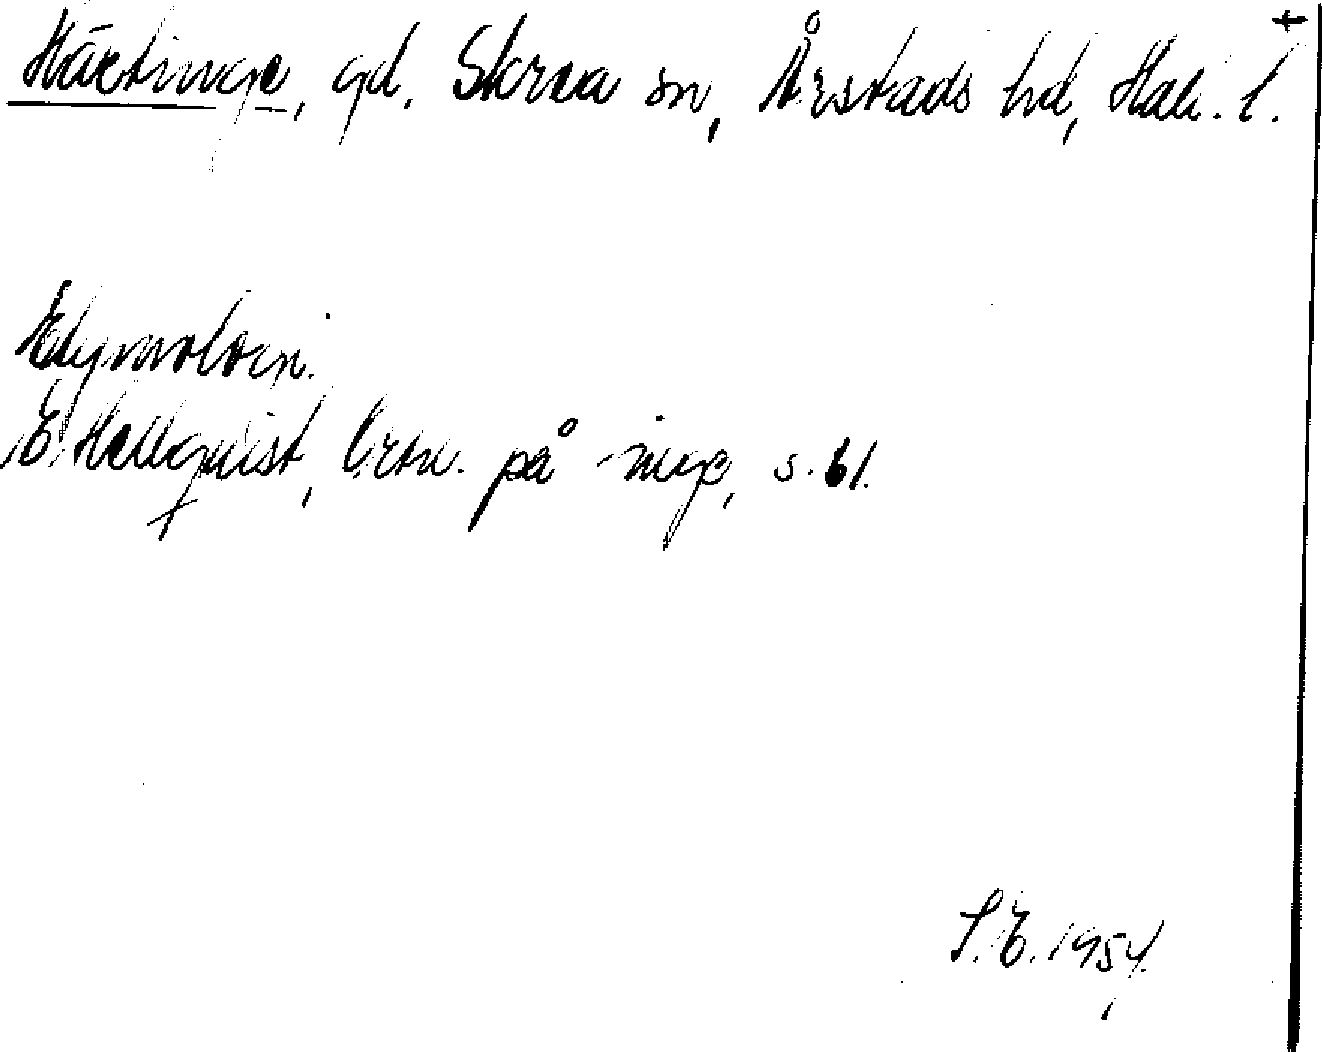 Härtinge, gd, Skrea sn, Årstads hd, Hall. l. +
Etymologi.
E. Hellquist, Ortn. på -inge, s. 61.
S.E. 1954.